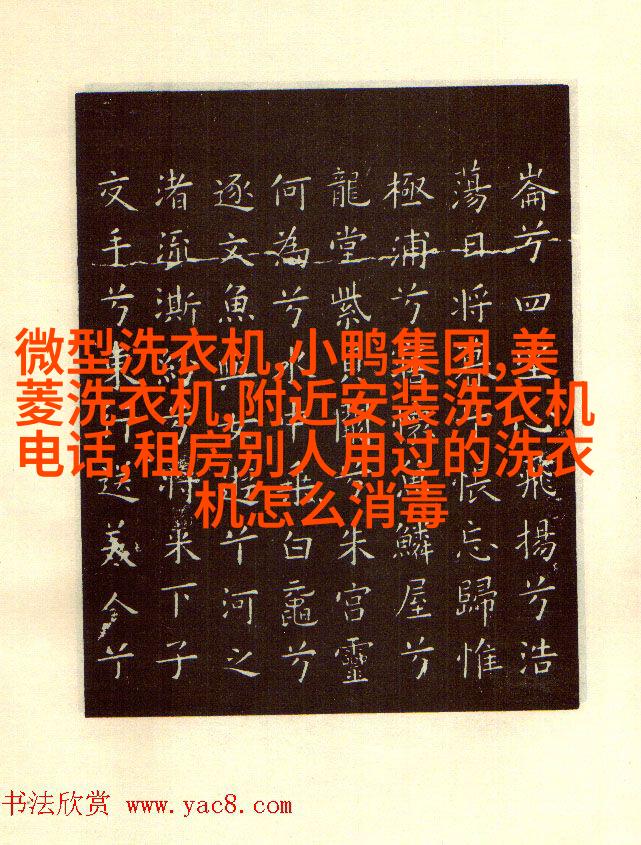 微型洗衣机,小鸭集团,美
菱洗衣机,附近安装洗衣机
电话,租房别人用过的洗衣
机怎么消毒
崙兮四 飛揚兮浩
蕩日將 悵忘歸惟
極浦兮 懷 鱗屋兮
龍堂紫貝闕兮朱宮靈
何為兮水中乘白黿兮
逐文魚與女遊兮河之
渚流澌紛兮將来下子
交手兮東行送美人兮
书法欣赏 www.yac8.com